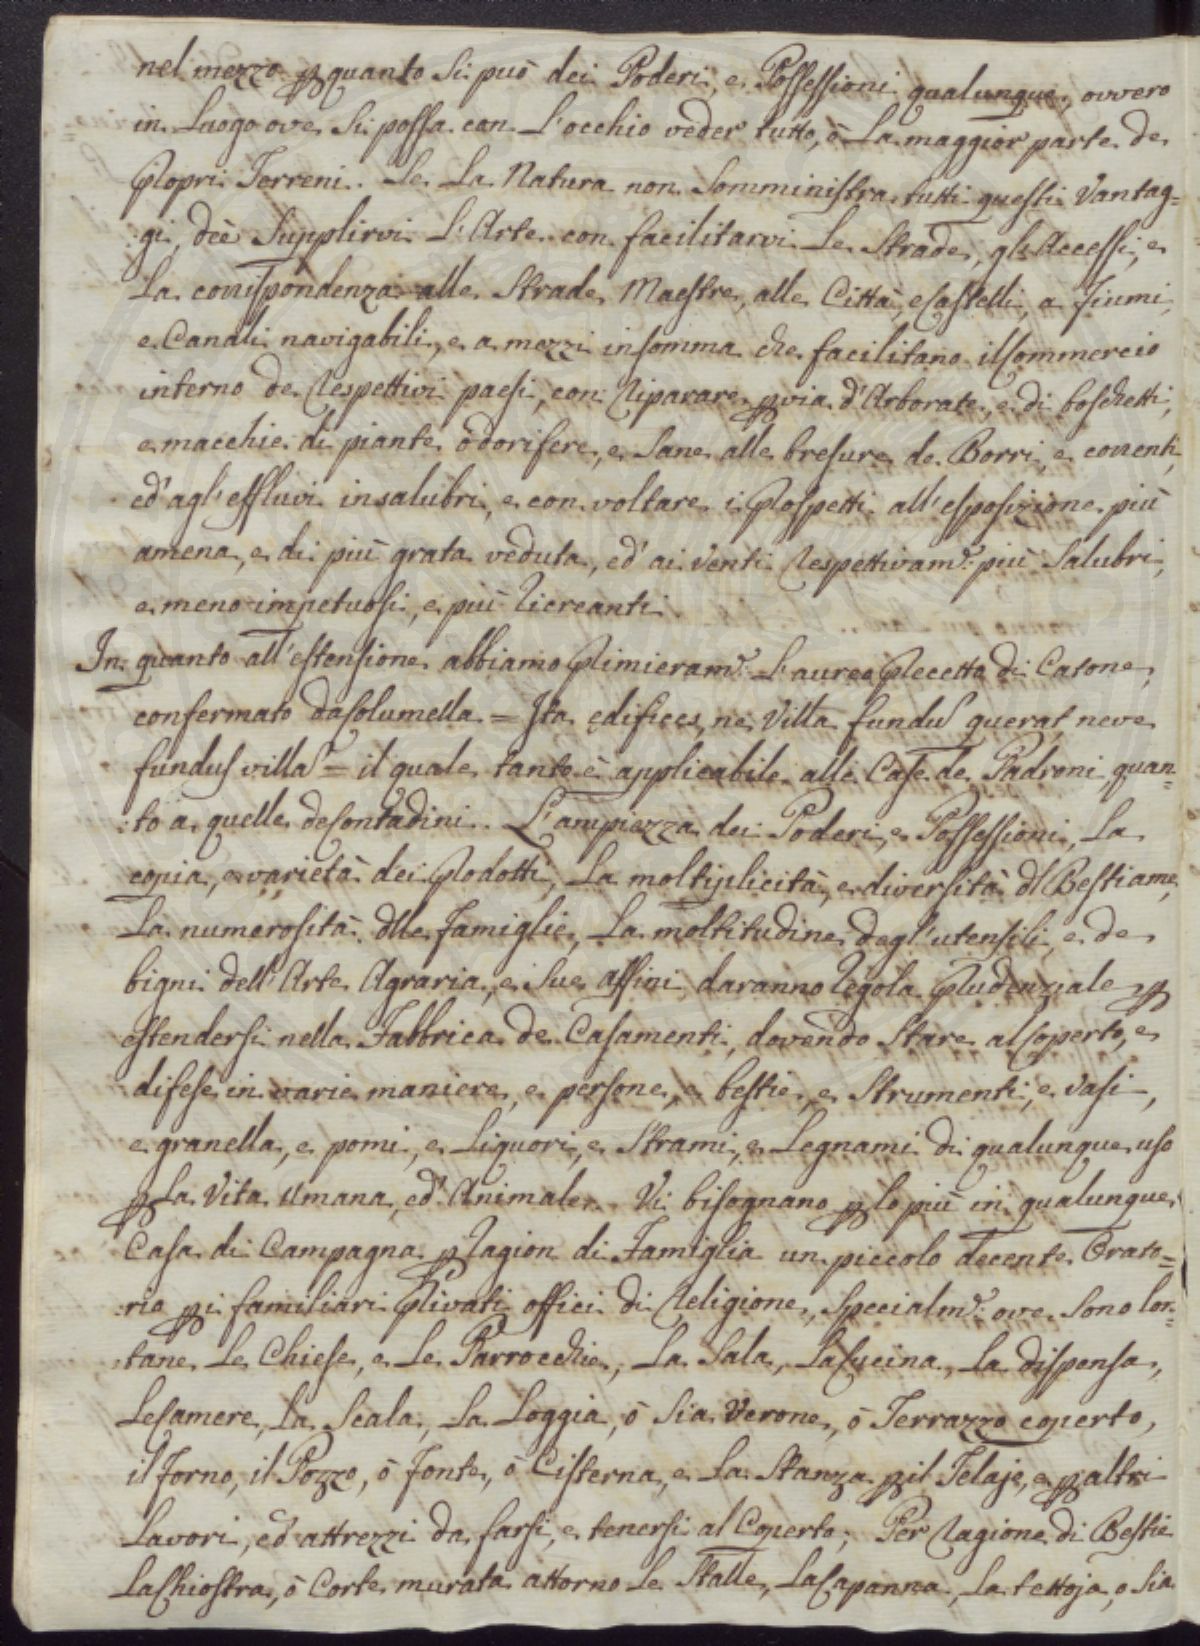 nel mezzo p quanto si può dei Poderi, e Possessioni qualunque, ovvero
in Luogo ove si possa con L'occhio veder tutto, ò La maggior parte de
Propri Terreni. Se La Natura non somministra tutti questi Vantag=
:gi, deè Supplirvi L'Arte con facilitarvi Le Strade, gli Accessi, e
La corrispondenza alle Strade Maestre, alle Città, e Castelli, a Fiumi,
e Canali navigabili, e a mezzi insomma che facilitano il Commercio
interno de Respettivi paesi, con Riparare p via d'Arborate, e di boschetti,
e macchie di piante odorifere, e Sane alle bresure de Borri, e correnti,
ed' agl'effluvi insalubri, e con voltare i Prospetti all'esposizione più
amena, e di più grata veduta, ed' ai Venti Respettivam.e più Salubri,
e meno impetuosi, e più Ricreanti.
In quanto all'estensione abbiamo Primieram.e L'aureo Precetto di Catone,
confermato da Columella = Ita edifices, ne Villa fundus querat neve
fundus villas = il quale tanto è applicabile alle Case de Padroni, quan=
:to a quelle de Contadini. L'ampiezza dei Poderi, e Possessioni, La
copia, e varietà dei Prodotti, La moltiplicità, e diversità dl Bestiame,
La numerosità dlle famiglie, La moltitudine degl'utensili, e de
bigni dell'Arte Agraria, e Sue affini daranno Regola Prudenziale p
estendersi nella Fabbrica de Casamenti, dovendo Stare al Coperto, e
difese in varie maniere, e persone, e bestie, e Strumenti, e Vasi,
e granella, e pomi, e Liquori, e Strami, e Legnami di qualunque uso
p La Vita Umana, ed' Animale. Vi bisognano p lo più in qualunque
Casa di Campagna p Ragion di Famiglia un piccolo decente Orato=
:rio p i familiari Privati offici di Religione, specialm.e ove sono lon=
:tane Le Chiese, e Le Parrocchie, La Sala, La Cucina, La dispensa,
Le Camere, La Scala, La Loggia, ò Sia Verone, ò Terrazzo coperto,
il forno, il Pozzo, ò fonte, ò Cisterna, e La Stanza p il Telaje, e p altri
Lavori, ed' attrezzi da farsi, e tenersi al Coperto; Per Ragione di Bestie
La Chiostra, ò Corte murata attorno Le Stalle, La Capanna, La tettoja, o Sia